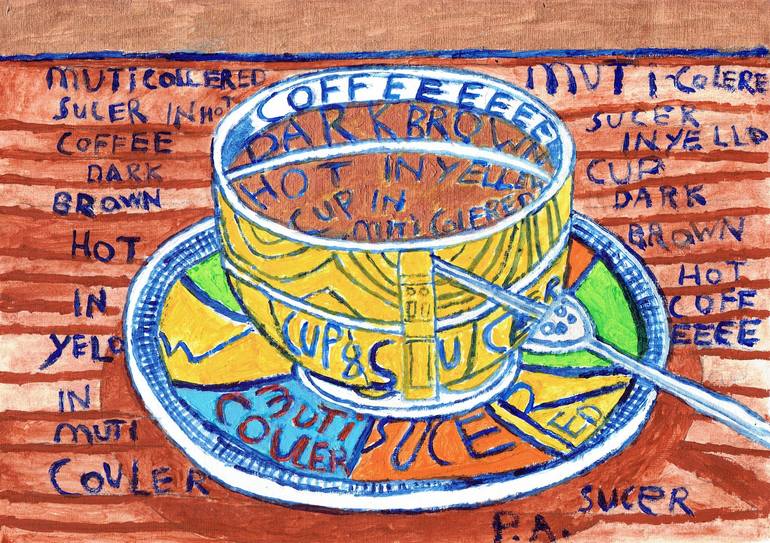 MUTICOLLERED
SUCER INHOT
COFFEE
DARK
BROWN
HOT
IN
YELO
IN
MUTI
COULER
COFFEEEEEE
DARKBROWN
HOT INYELLOW
CUP IN
MUTI COLERED
CUP & SUCER
W
MUTI
COULER
SUCER
ED
MUTI-COLERE
SUCER
INYELLO
CUP
DARK
BROWN
HOT
COFE
EEEE
SUCER
P.A.